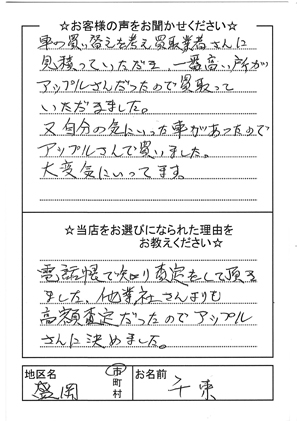 ☆お客様の声をお聞かせください☆
車の買い替えを考え買取業者さんに
見積っていただき 一番高い所が
アップルさんだったので買取って
いただきました。
又自分の気にいった車があったので
アップルさんで買いました。
大変気にいってます。
☆当店をお選びになられた理由を
お教えください☆
電話帳で知り査定をして頂き
ました、他業社さんよりも
高額査定だったのでアップル
さんに決めました。
地区名
盛岡
市
町
村
お名前
千